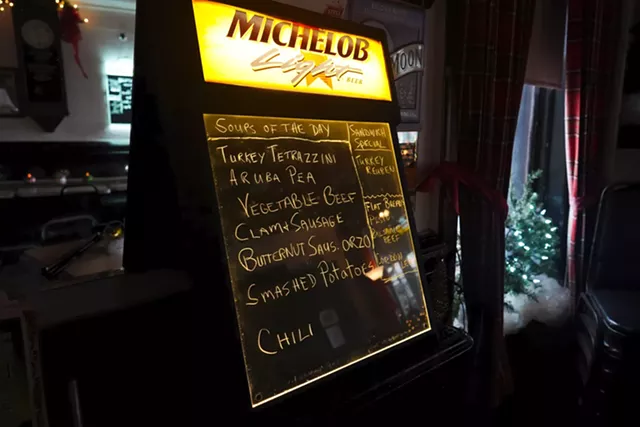 MICHELOB
Light
BEER
MOON
SOUPS OF THE DAY
TURKEY TETRAZZINI
ARUBA PEA
VEGETABLE BEEF
CLAM & SAUSAGE
BUTTERNUT SAUS. ORZO
SMASHED POTATOES
CHILI
SANDWICH
SPECIAL
TURKEY
REUBEN
FLAT BREAD
BEEF